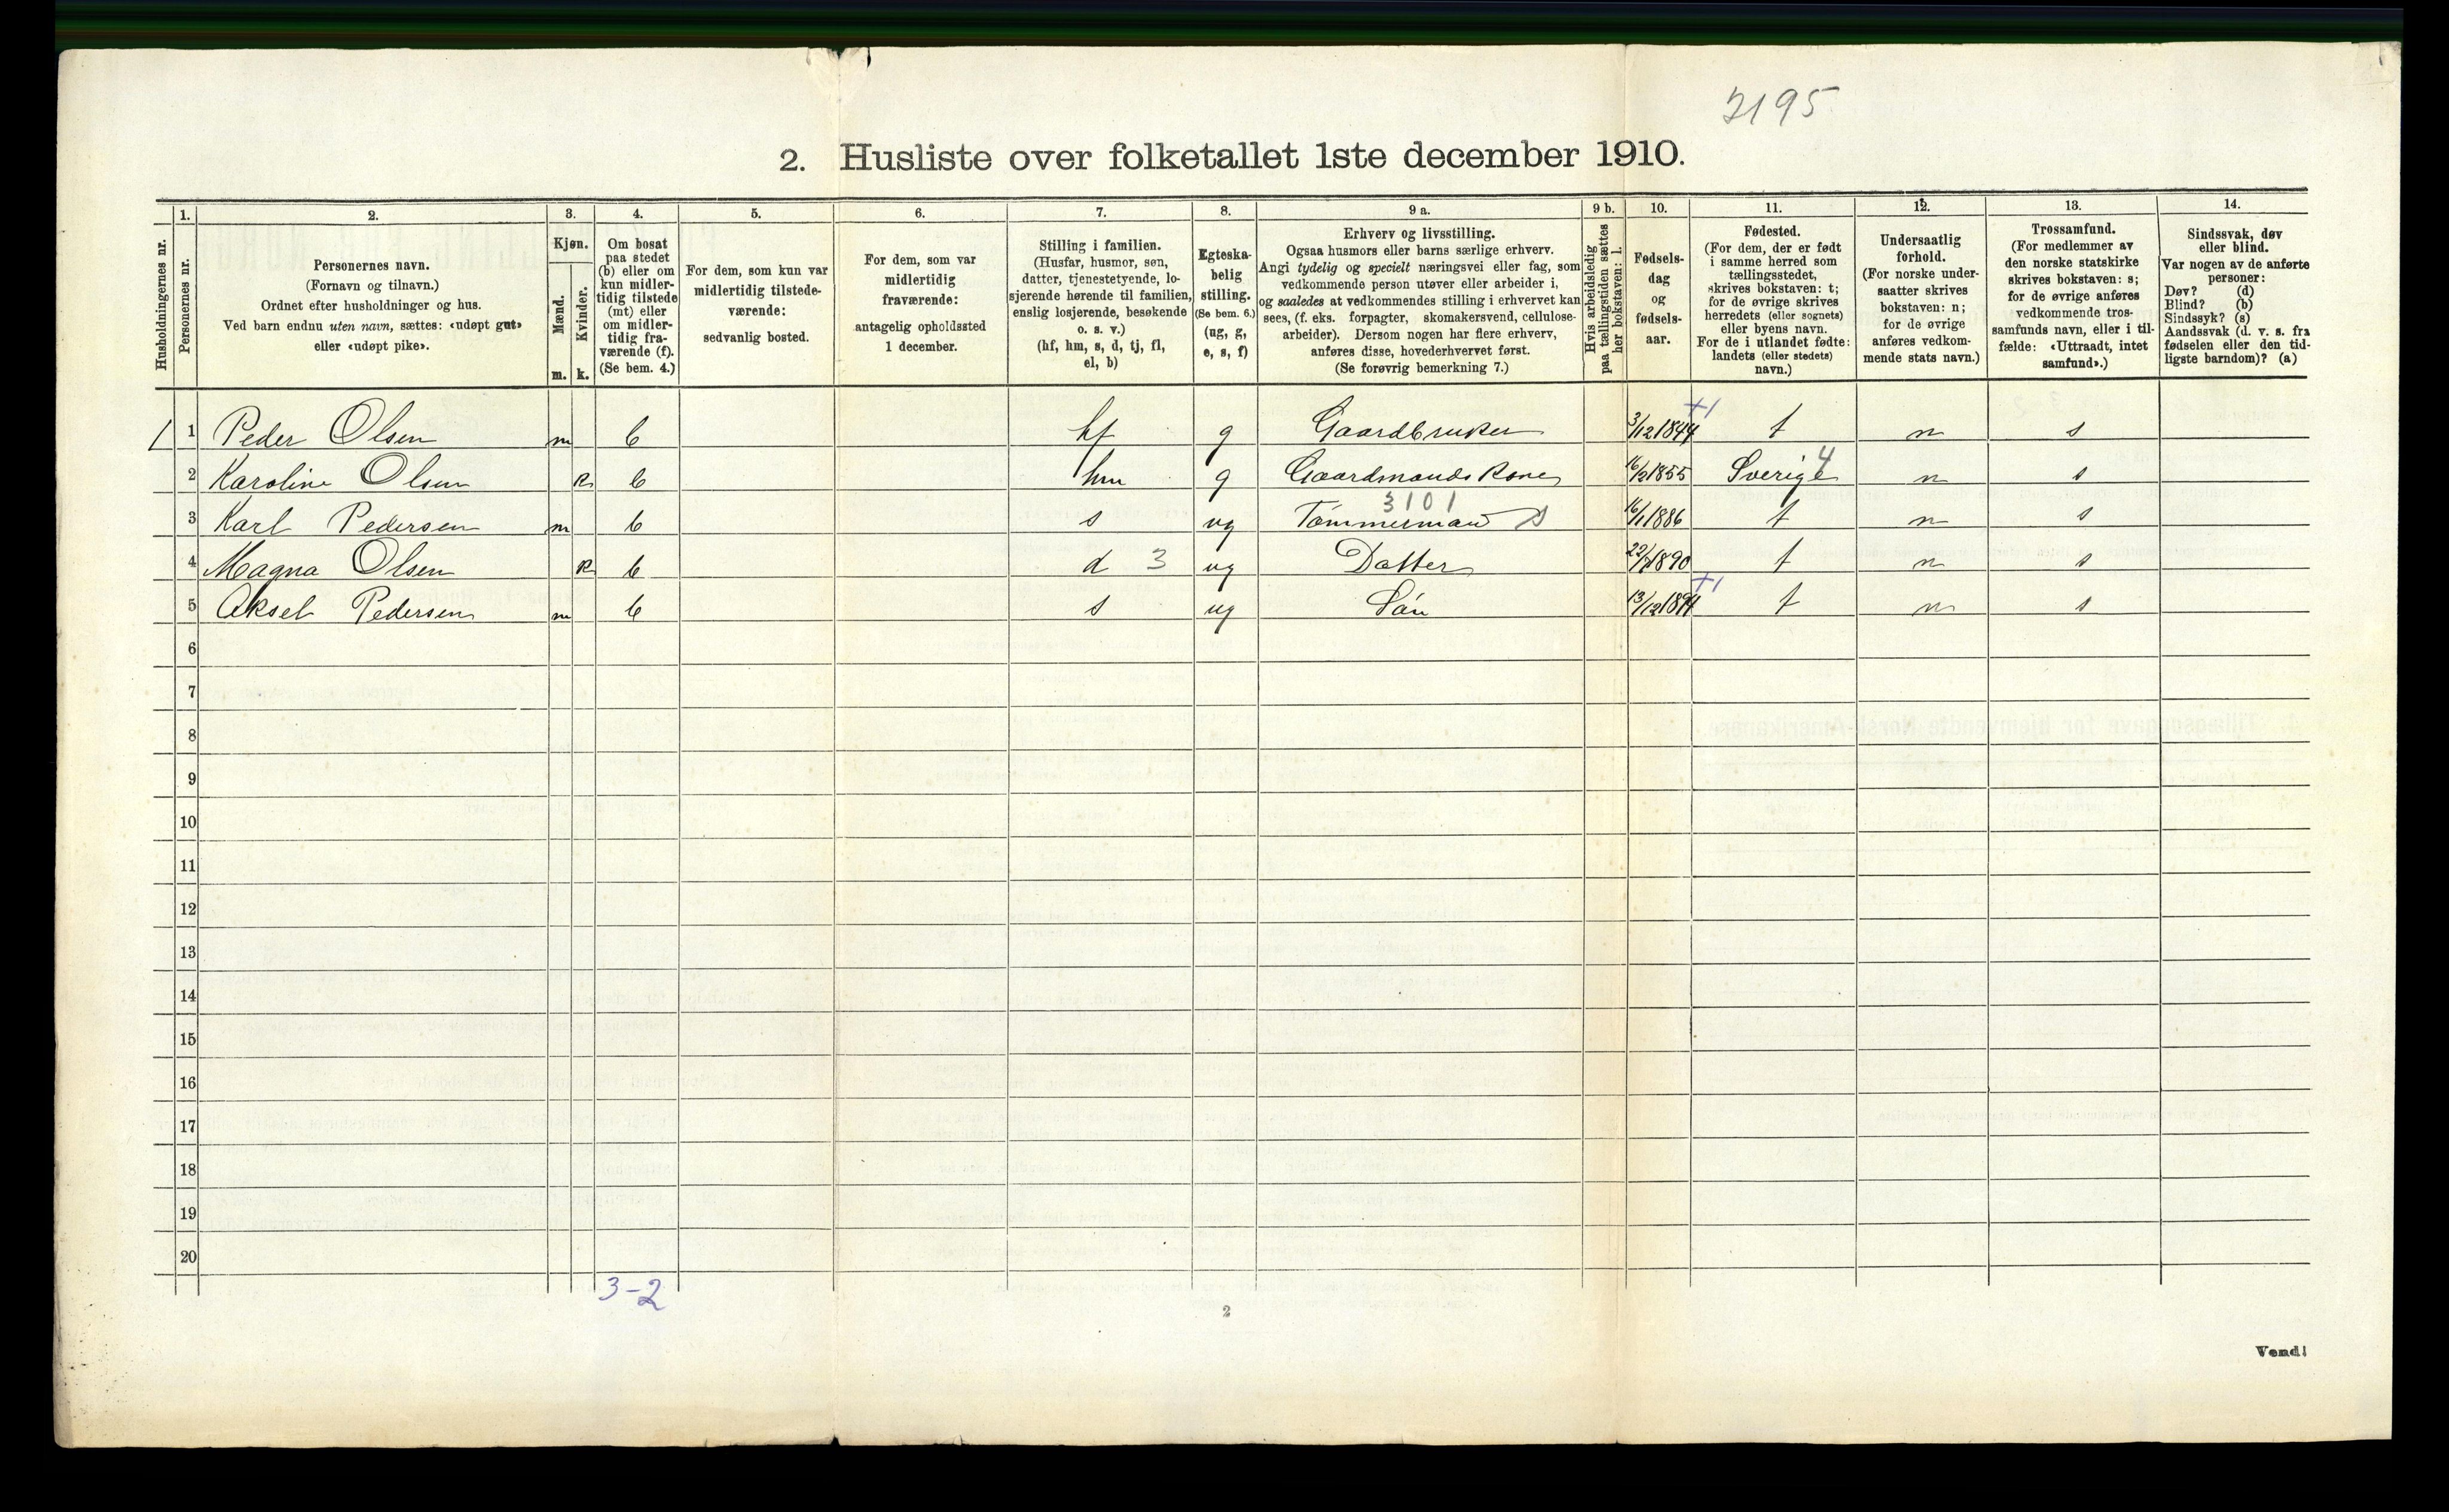 2195
2. Husliste over folketallet 1ste december 1910.
Husholdningernes nr.
1.
Personernes nr.
2.
Personernes navn.
(Fornavn og tilnavn.)
Ordnet efter husholdninger og hus.
Ved barn endnu uten navn, sættes: «udøpt gut»
eller «udøpt pike».
3.
Kjøn.
Mænd.
Kvinder.
m. k.
4.
Om bosat
paa stedet
(b) eller om
kun midler-
tidig tilstede
(mt) eller
om midler-
tidig fra-
værende (f).
(Se bem. 4.)
5.
For dem, som kun var
midlertidig tilstede-
værende:
sedvanlig bosted.
6.
For dem, som var
midlertidig
fraværende:
antagelig opholdssted
1 december.
7.
Stilling i familien.
(Husfar, husmor, søn,
datter, tjenestetyende, lo-
sjerende hørende til familien,
enslig losjerende, besøkende
o. s. v.)
(hf, hm, s, d, tj, fl,
el, b)
8.
Egteska-
belig
stilling.
(Se bem. 6.)
(ug, g,
e, s, f)
9 a.
Erhverv og livsstilling.
Ogsaa husmors eller barns særlige erhverv.
Angi tydelig og specielt næringsvei eller fag, som
vedkommende person utøver eller arbeider i,
og saaledes at vedkommendes stilling i erhvervet kan
sees, (f. eks. forpagter, skomakersvend, cellulose-
arbeider). Dersom nogen har flere erhverv,
anføres disse, hovederhvervet først.
(Se forøvrig bemerkning 7.)
9 b.
Hvis arbeidsledig
paa tællingstiden sættes
her bokstaven: l.
10.
Fødsels-
dag
og
fødsels-
aar.
11.
Fødested.
(For dem, der er født
i samme herred som
tællingsstedet,
skrives bokstaven: t;
for de øvrige skrives
herredets (eller sognets)
eller byens navn.
For de i utlandet fødte:
landets (eller stedets)
navn.)
12.
Undersaatlig
forhold.
(For norske under-
saatter skrives
bokstaven: n;
for de øvrige
anføres vedkom-
mende stats navn.)
13.
Trossamfund.
(For medlemmer av
den norske statskirke
skrives bokstaven: s;
for de øvrige anføres
vedkommende tros-
samfunds navn, eller i til-
fælde: «Uttraadt, intet
samfund».)
14.
Sindssvak, døv
eller blind.
Var nogen av de anførte
personer:
Døv? (d)
Blind? (b)
Sindssyk? (s)
Aandssvak (d. v. s. fra
fødselen eller den tid-
ligste barndom)? (a)
1 1 Peder Olsen m b hf g Gaardbruker 3/12 1844 +1 t n s
2 Karoline Olsen k b hm g Gaardmands Kone 16/2 1855 Sverige 4 n s
3101
3 Karl Pedersen m b s ug Tømmermand S 16/1 1886 t n s
4 Magna Olsen k b d 3 ug Datter 1890 t n s
5 Aksel Pedersen m b s ug Søn +1 t n s
6
7
8
9
10
11
12
13
14
15
16
17
18
19
20
3-2
2
Vend!